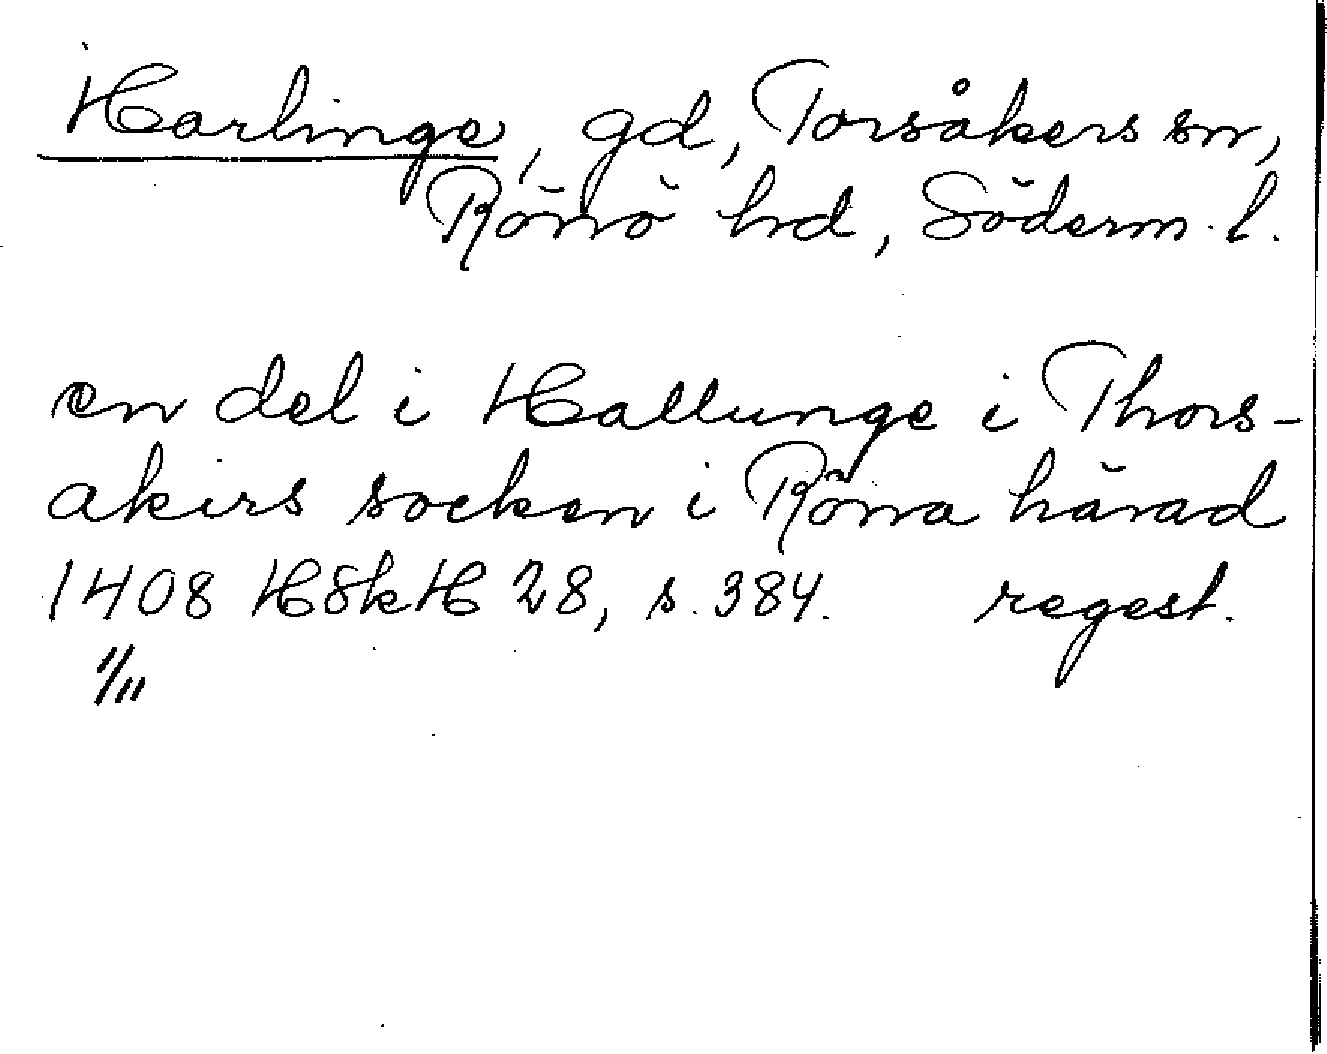 Harlinge, gd, Torsåkers sn,
Rönö hd, Söderm. l.
en del i Hallunge i Thors-
akirs socken i Röna härad
1408 HSkH 28, s. 384. regest.
1/11